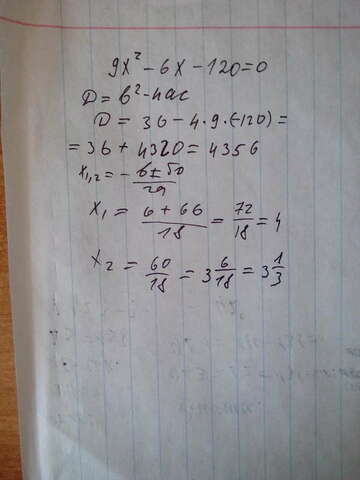 9x² - 6x - 120 = 0
D = b² - 4ac
D = 36 - 4 · 9 · (-120) =
= 36 + 4320 = 4356
x₁,₂ = - b ± √D / 2a
x₁ = 6 + 66 / 18 = 72 / 18 = 4
x₂ = 60 / 18 = 3 6/18 = 3 1/3